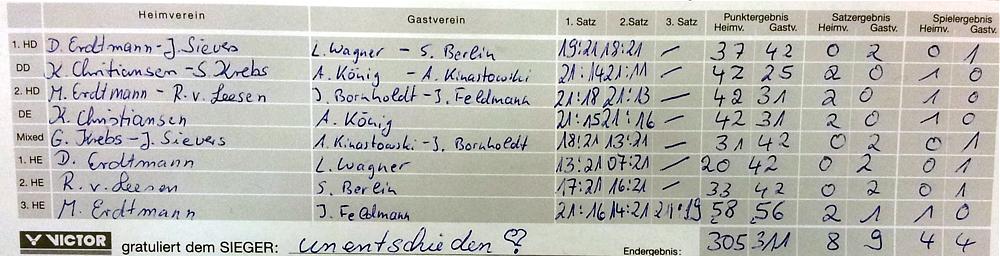 Heimverein Gastverein 1. Satz 2.Satz 3. Satz Punktergebnis Satzergebnis Spielergebnis
Heimv. Gastv. Heimv. Gastv. Heimv. Gastv.
1. HD D. Erdtmann-J. Sievers L. Wagner - S. Berlin 19:21 18:21 — 37 42 0 2 0 1
DD K. Christiansen -S. Krebs A. König - A. Kinastowski 21:14 21:11 — 42 25 2 0 1 0
2. HD M. Erdtmann - R. v. Leesen J. Bornholdt-J. Feldmann 21:18 21:13 — 42 31 2 0 1 0
DE K. Christiansen A. König 21:15 21:16 — 42 31 2 0 1 0
Mixed G. Krebs-J. Sievers A. Kinastowski-J. Bornholdt 18:21 13:21 — 31 42 0 2 0 1
1. HE D. Erdtmann L. Wagner 13:21 07:21 — 20 42 0 2 0 1
2. HE R. v. Leesen S. Berlin 17:21 16:21 — 33 42 0 2 0 1
3. HE M. Erdtmann J. Feldmann 21:16 14:21 21:19 58 56 2 1 1 0
VICTOR gratuliert dem SIEGER: unentschieden Endergebnis: 305 311 8 9 4 4